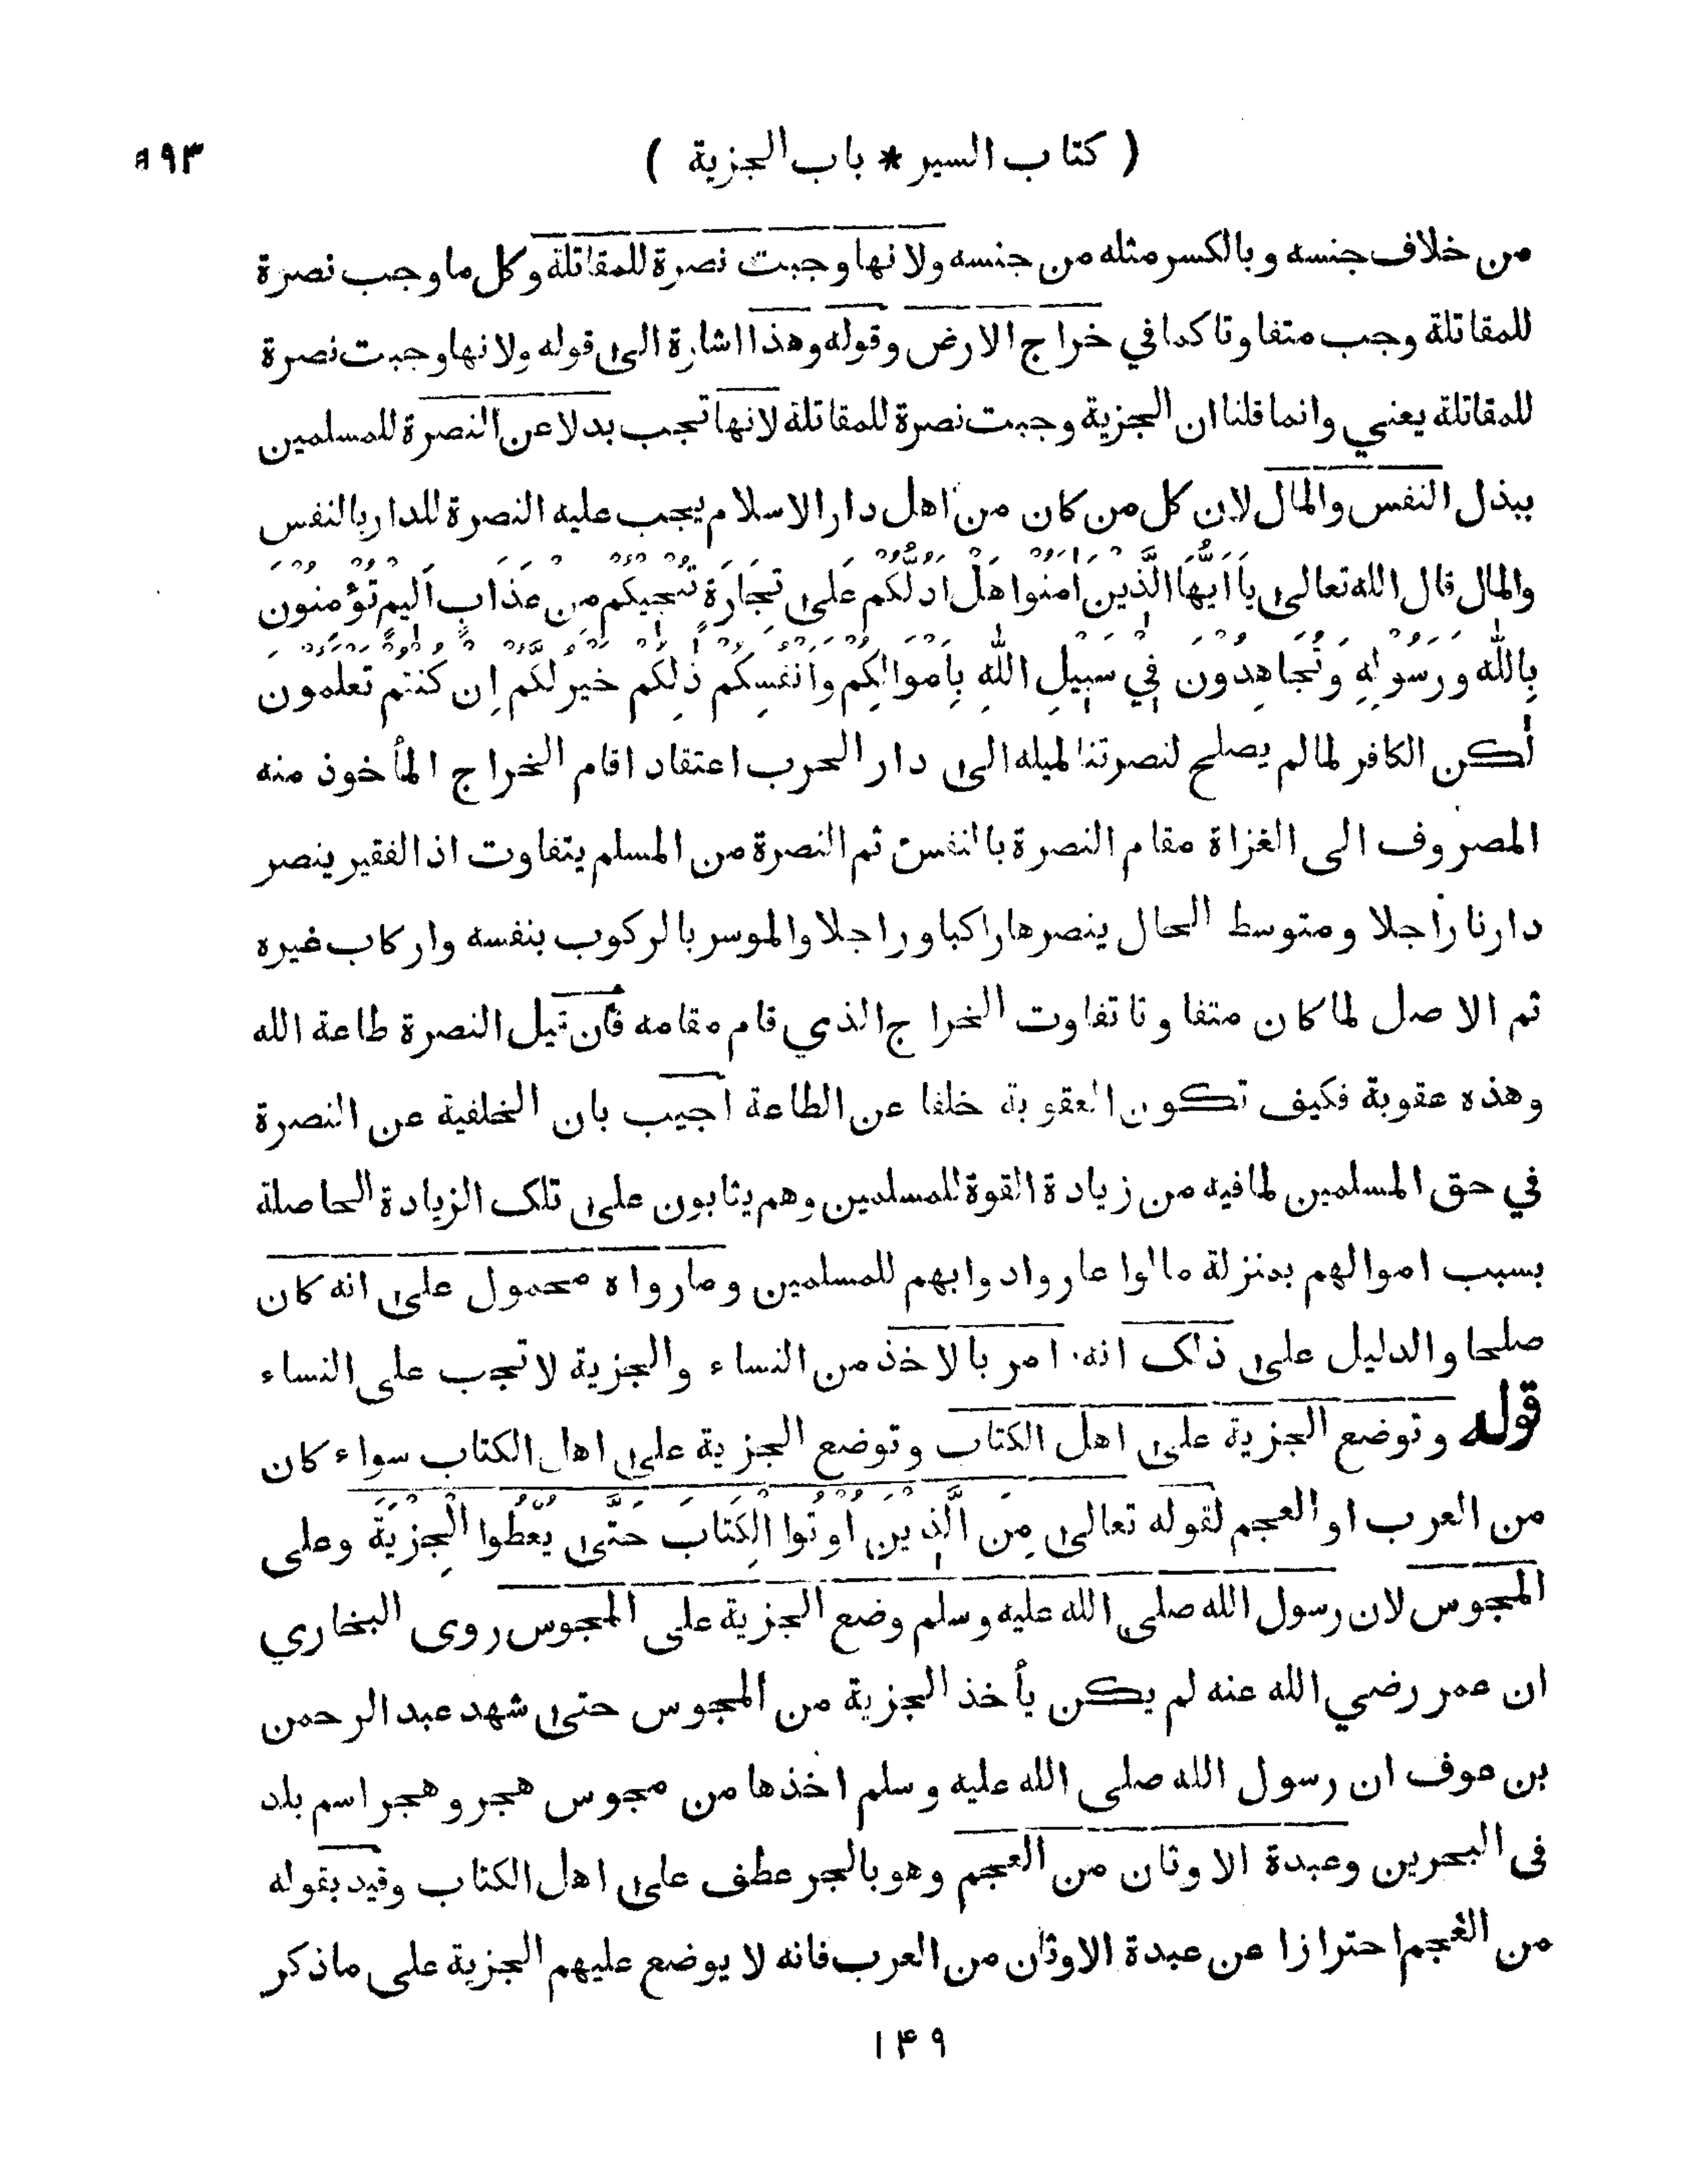 ( كتاب السير * باب الجزية ) ٥٩٣
من خلاف جنسه وبالكسر مثله من جنسه ولانها وجبت نصرة للمقاتلة وكل ما وجب نصرة
للمقاتلة وجب متفاوتا كما في خراج الارض وقوله وهذا اشارة الى قوله ولانها وجبت نصرة
للمقاتلة يعني وانما قلنا ان الجزية وجبت نصرة للمقاتلة لانها تجب بدلا عن النصرة للمسلمين
ببذل النفس والمال لان كل من كان من اهل دار الاسلام يجب عليه النصرة للدار بالنفس
والمال قال الله تعالى يَا اَيُّهَا الَّذِيْنَ اٰمَنُوْا هَلْ اَدُلُّكُمْ عَلٰى تِجَارَةٍ تُنْجِيْكُمْ مِنْ عَذَابٍ اَلِيْمٍ تُؤْمِنُوْنَ
بِاللّٰهِ وَرَسُوْلِهٖ وَتُجَاهِدُوْنَ فِيْ سَبِيْلِ اللّٰهِ بِاَمْوَالِكُمْ وَاَنْفُسِكُمْ ذٰلِكُمْ خَيْرٌ لَّكُمْ اِنْ كُنْتُمْ تَعْلَمُوْنَ
لكن الكافر لما لم يصلح لنصرتنا لميله الى دار الحرب اعتقادا قام الخراج المأخوذ منه
المصروف الى الغزاة مقام النصرة بالنفس ثم النصرة من المسلم يتفاوت اذ الفقير ينصر
دارنا راجلا ومتوسط الحال ينصرها راكبا وراجلا والموسر بالركوب بنفسه واركاب غيره
ثم الاصل لما كان متفاوتا تفاوت الخراج الذي قام مقامه فان قيل النصرة طاعة الله
وهذه عقوبة فكيف تكون العقوبة خلفا عن الطاعة اجيب بان الخلفية عن النصرة
في حق المسلمين لما فيه من زيادة القوة للمسلمين وهم يثابون على تلك الزيادة الحاصلة
بسبب اموالهم بمنزلة ما لوا عاروا دوابهم للمسلمين وما رواه محمول على انه كان
صلحا والدليل على ذلك انه امر بالاخذ من النساء والجزية لا تجب على النساء
قوله وتوضع الجزية على اهل الكتاب وتوضع الجزية على اهل الكتاب سواء كان
من العرب او العجم لقوله تعالى مِنَ الَّذِيْنَ اُوْتُوا الْكِتَابَ حَتّٰى يُعْطُوا الْجِزْيَةَ وعلى
المجوس لان رسول الله صلى الله عليه وسلم وضع الجزية على المجوس روى البخاري
ان عمر رضي الله عنه لم يكن يأخذ الجزية من المجوس حتى شهد عبد الرحمن
بن عوف ان رسول الله صلى الله عليه وسلم اخذها من مجوس هجر وهجر اسم بلد
فى البحرين وعبدة الاوثان من العجم وهو بالجر عطف على اهل الكتاب وقيد بقوله
من العجم احترازا عن عبدة الاوثان من العرب فانه لا يوضع عليهم الجزية على ما ذكر
١۴٩